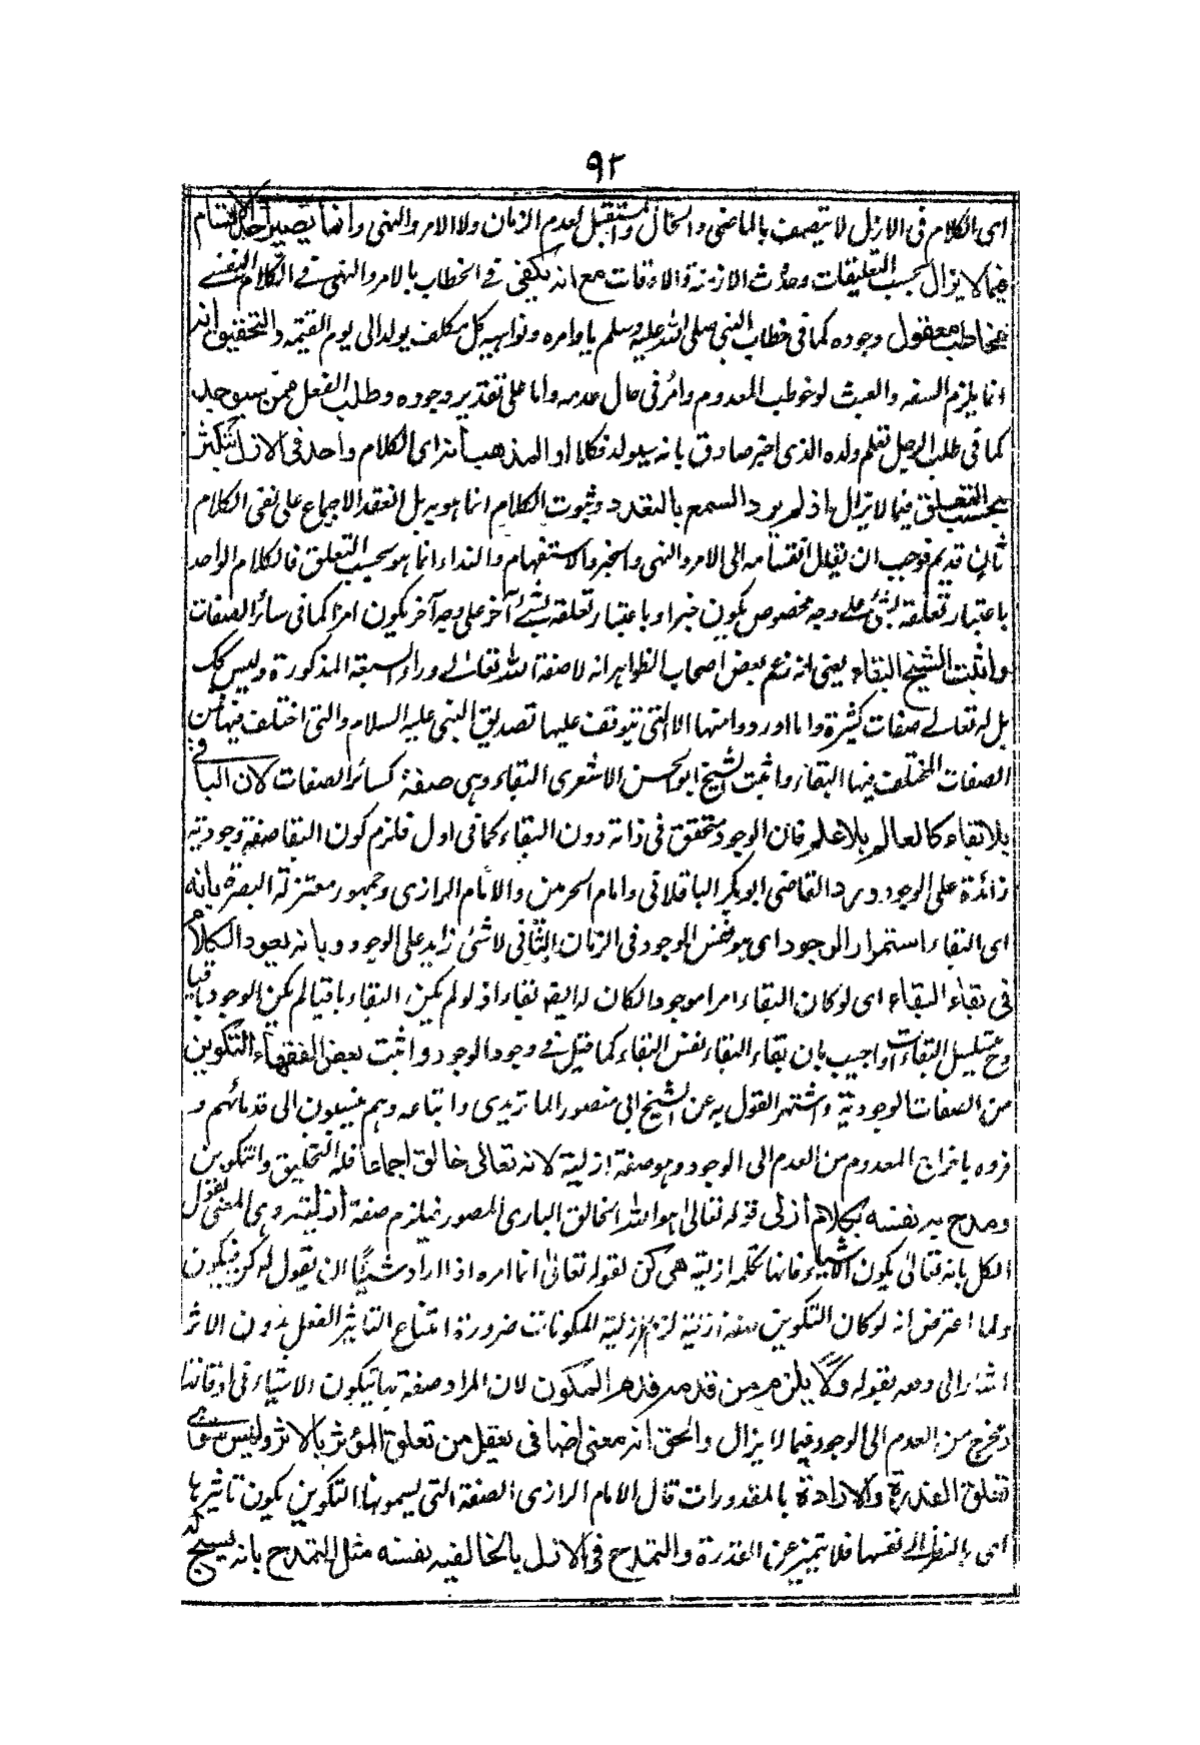 ٩٢
اى الكلام فى الازل لا يتصف بالماضى والحال والمستقبل لعدم الزمان ولا الامر والنهى وانما يصير احد الاقسام
فيما لا يزال بحسب التعليقات وحدث الازمنة والاوقات مع انه يكفى فى الخطاب بالامر والنهى فى الكلام النفسے
مخاطب معقول وجوده كما فى خطاب النبى صلى الله عليه وسلم باوامره ونواهيه كل مكلف يولد الى يوم القيمة والتحقيق انه
انما يلزم السفه والعبث لو خوطب المعدوم وامر فى حال عدمه واما على تقدير وجوده وطلب الفعل ممن سيوجد
كما فى طلب الرجل تعلم ولده الذى اخبر صادق بانه سيولد فكلا او المذهب انه اى الكلام واحد فى الازل يتكثر
بحسب التعلق فيما لا يزال اذ لم يرد السمع بالتعدد وثبوت الكلام انما هو به بل انعقد الاجماع على نفى الكلام
ثان قديم فوجب ان يقال انقسامه الى الامر والنهى والخبر والاستفهام والنداء انما هو بحسب التعلق فالكلام الواحد
باعتبار تعلقه بشئ على وجه مخصوص يكون خبرا وباعتبار تعلقه بشئ آخر على وجه آخر يكون امرا كما فى سائر الصفات
واثبت الشيخ البقاء يعنى انه زعم بعض اصحاب الظواهر انه لا صفة الله تعالے وراء السبعة المذكورة وليس كك
بل له تعالے صفات كثيرة واما اوردوا منها الا التى يتوقف عليها تصديق النبى عليه السلام والتى اختلف فيها فمن
الصفات المختلف فيها البقاء واثبت الشيخ ابو الحسن الاشعرى البقاء وهى صفة كسائر الصفات لان الباقى
بلا بقاء كالعالم بلا علم فان الوجود متحقق فى ذاته دون البقاء كما فى اول فلزم كون البقا صفة وجودية
زائدة على الوجود ورد القاضى ابو بكر الباقلانى وامام الحرمين والامام الرازى وجمهور معتزلة البصرة بانه
اى البقاء استمرار الوجود اى هو نفس الوجود فى الزمان الثانى لا شئ زايد على الوجود وبانه يعود الكلام
فى بقاء البقاء اى لو كان البقاء امرا موجودا لكان له ايضا بقاء اذ لو لم يكن البقاء باقيا لم يكن الوجود باقيا
وح يتسلسل البقاءات واجيب بان بقاء البقاء نفس البقاء كما قيل فى وجود الوجود واثبت بعض الفقهاء التكوين
من الصفات الوجودية واشتهر القول به عن الشيخ ابى منصور الماتريدى واتباعه وهم ينسبون الى قدمائهم و
فروه باخراج المعدوم من العدم الى الوجود وهو صفة ازلية لانه تعالى خالق اجماعا فله التخليق والتكوين
ومدح به نفسه بكلام أزلى قوله تعالى هو الله الخالق البارى المصور فيلزم صفة أزلية وهى المعنى بقول
الكل بانه تعالى يكون الاشياء فانها تحكم ازلية هى كن لقوله تعالى انما امره اذا اراد شيئا ان يقول له كن فيكون
ولما اعترض انه لو كان التكوين صفة ازلية لزم ازلية المكونات ضرورة امتناع التاثير الفعل بدون الاثر
اشار الى دفعه بقوله ولا يلزم من قدمه قدم المكون لان المراد صفة بها يتكون الاشياء فى اوقاتها
وتخرج من العدم الى الوجود فيما لا يزال والحق انه معنى اضافى يعقل من تعلق المؤثر بالاثر وليس سوى
تعلق القدرة والارادة بالمقدورات قال الامام الرازى الصفة التى يسمونها التكوين يكون تاثيرها
اى بالنظر الى نفسها فلا يتميز عن القدرة والتمدح فى الازل بالخالقيه نفسه مثل التمدح بانه يسبح له